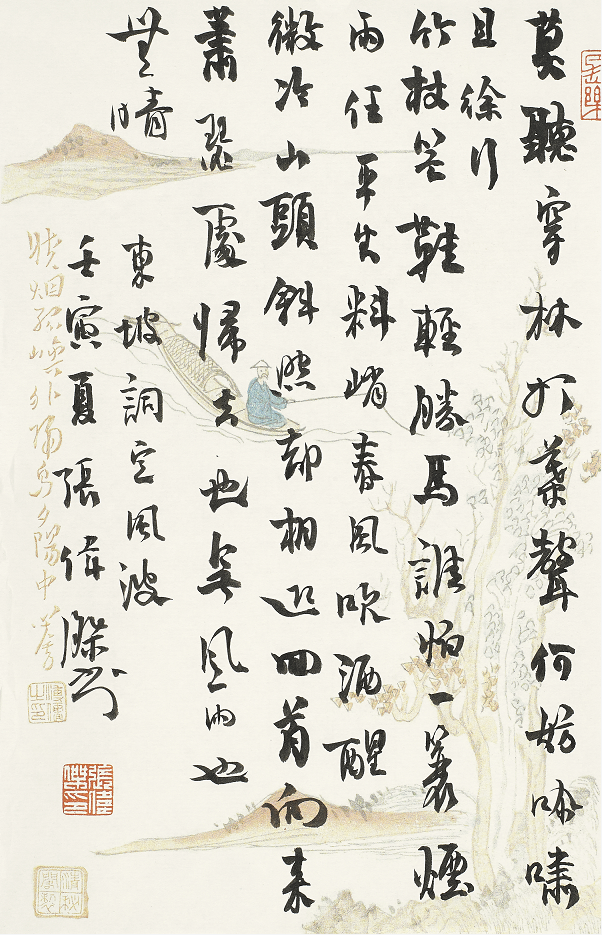 莫聽穿林打葉聲何妨吟嘯
且徐行
竹杖芒鞋輕勝馬誰怕一蓑煙
雨任平生料峭春風吹酒醒
微冷山頭斜照却相迎回首向來
蕭瑟處歸去也無風雨也
無晴
東坡詞定風波
壬寅夏張偉傑書
烟孤嶼外歸鳥夕陽中
張偉傑印